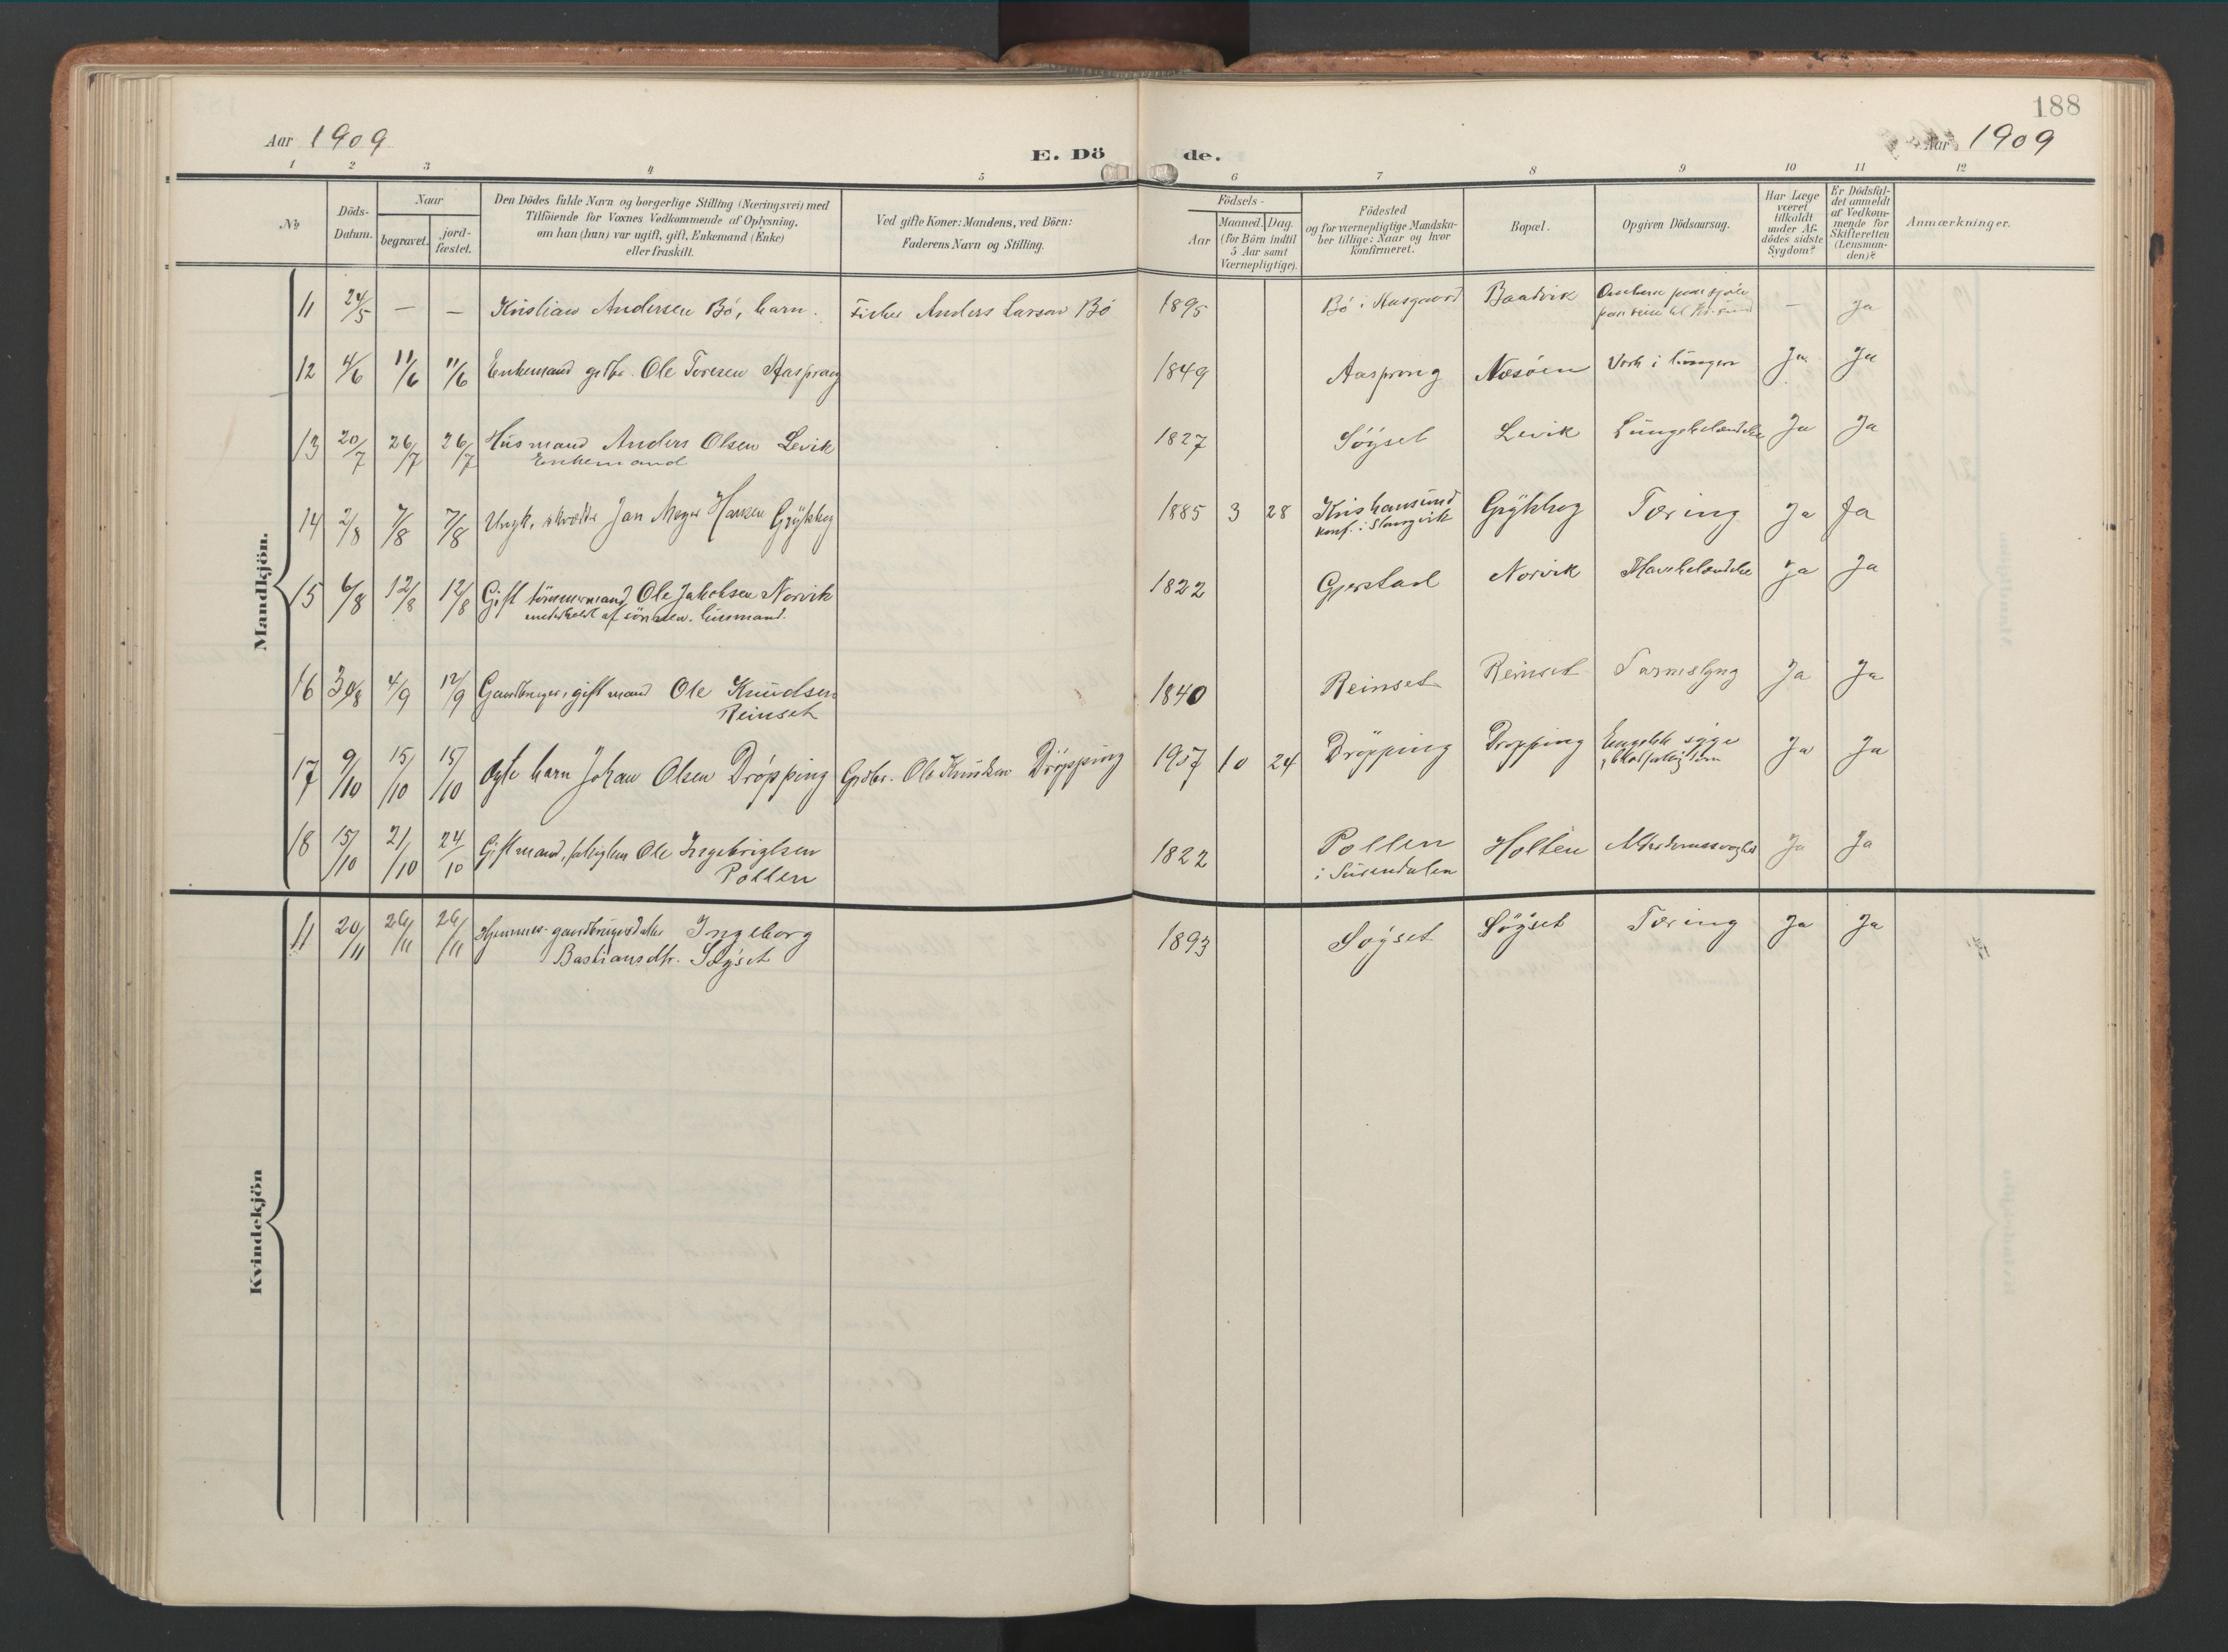 188
Aar 1909
E. Dö
de.
Aar 1909
1 2 3 4 5 6 7 8 9 10 11 12
No
Döds-
Datum.
Naar
begravet.
jord-
fæstet.
Den Dödes fulde Navn og borgerlige Stilling (Næringsvei) med
Tilföiende for Voxnes Vedkommende af Oplysning,
om han (hun) var ugift, gift, Enkemand (Enke)
eller fraskilt.
Ved gifte Koner: Mandens, ved Börn:
Faderens Navn og Stilling.
Födsels-
Aar
Maaned. Dag.
(for Börn indtil
5 Aar samt
Værnepligtige).
Födested
og for værnepligtige Mandska-
ber tillige: Naar og hvor
konfirmeret.
Bopæl.
Opgiven Dödsaarsag.
Har Læge
været
tilkaldt
under Af-
dödes sidste
Sygdom?
Er Dödsfal-
det anmeldt
af Vedkom-
mende for
Skifteretten
(Lensman-
den)?
Anmærkninger.
Mandkjön.
11 24/5 — — Kristian Andersen Bö, barn. Fisker Anders Larsen Bö 1895 Bö i Baadvik — Ja
12 4/6 11/6 11/6 Enkemand grbr. Ole Toresen Aasprong 1849 Aasprong Næsöen Verk i lungen Ja Ja
13 20/7 26/7 26/7 Husmand Anders Olsen Levik 1827 Söyset Levik Lungebetændelse Ja Ja
Enkemand
14 2/8 7/8 7/8 Ungk. Jan Meyer Hansen Grÿkhog 1885 3 28 Kristiansund Grÿkhog Tæring Ja Ja
konf. i Stangvik
15 6/8 12/8 12/8 Gift tömmermand Ole Jakobsen Norvik 1822 Gjerstad Norvik Ja Ja
underholdt af sönnen. husmand.
16 30/8 4/9 12/9 Gaardbruger, gift mand Ole Knudsen 1840 Reinset Reinset Tarmslyng Ja Ja
Reinset
17 9/10 15/10 15/10 Ægte barn Johan Olsen Dröpping Grdbr. Ole Knudsen Dröpping 1907 10 24 Dröpping Dröpping Engelsk syge Ja Ja
18 15/10 21/10 24/10 Gift mand, fattiglem Ole Ingebrigtsen 1822 Pollen Holten Alderdomssvaghed Ja Ja
Pollen
i Surendalen
Kvindekjön
11 20/11 26/11 26/11 Hjemmev. gaardbrugerdatter Ingeborg 1893 Söyset Söyset Tæring Ja Ja
Bastiansdtr. Söyset